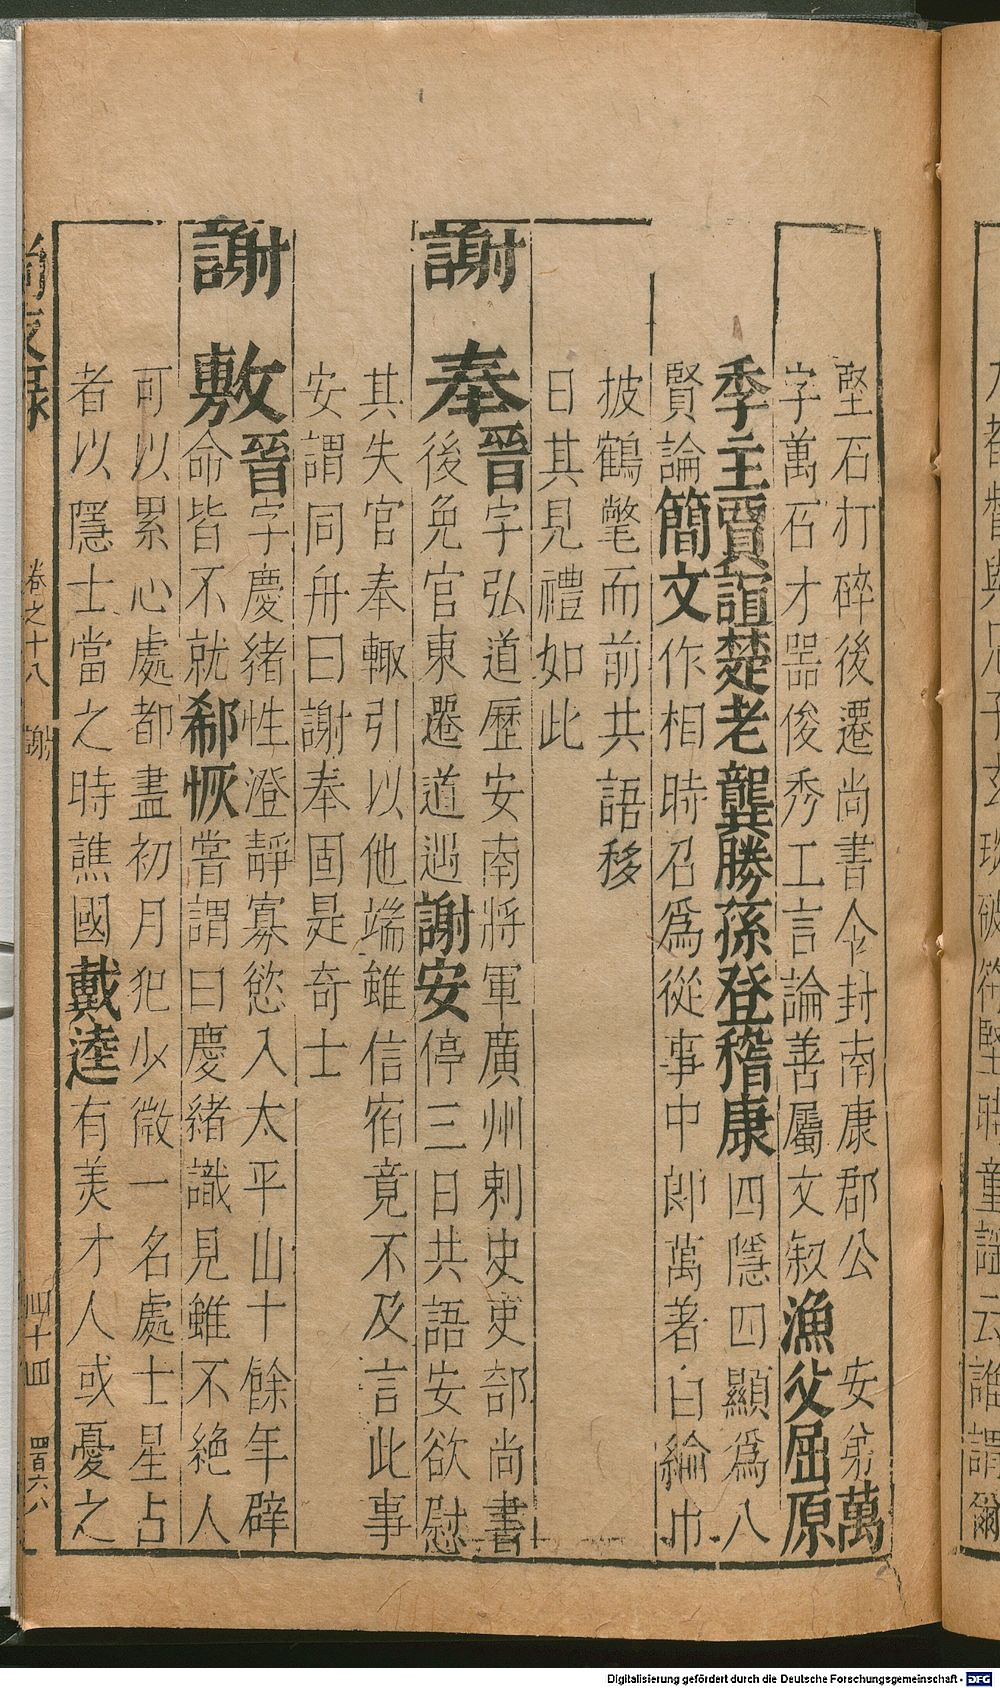 堅石打碎後遷尚書令封南康郡公　安弟萬
字萬石才器俊秀工言論善屬文叙漁父屈原
季主賈誼楚老龔勝孫登嵇康四隱四顯為八
賢論簡文作相時召爲從事中郎萬著白綸巾
披鶴氅而前共語移
日其見禮如此
謝奉晉字弘道歷安南將軍廣州刺史吏部尚書
後免官東還道遇謝安停三日共語安欲慰
其失官奉輙引以他端雖信宿竟不及言此事
安謂同舟曰謝奉固是奇士
謝敷晉字慶緒性澄靜寡慾入太平山十餘年辟
命皆不就郗恢嘗謂曰慶緒識見雖不絕人
可以累心處都盡初月犯少微一名處士星占
者以隱士當之時譙國戴逵有美才人或憂之
卷之十八　謝　四十四　四百六八
童謡云誰謂爾
Digitalisierung gefördert durch die Deutsche Forschungsgemeinschaft - DFG